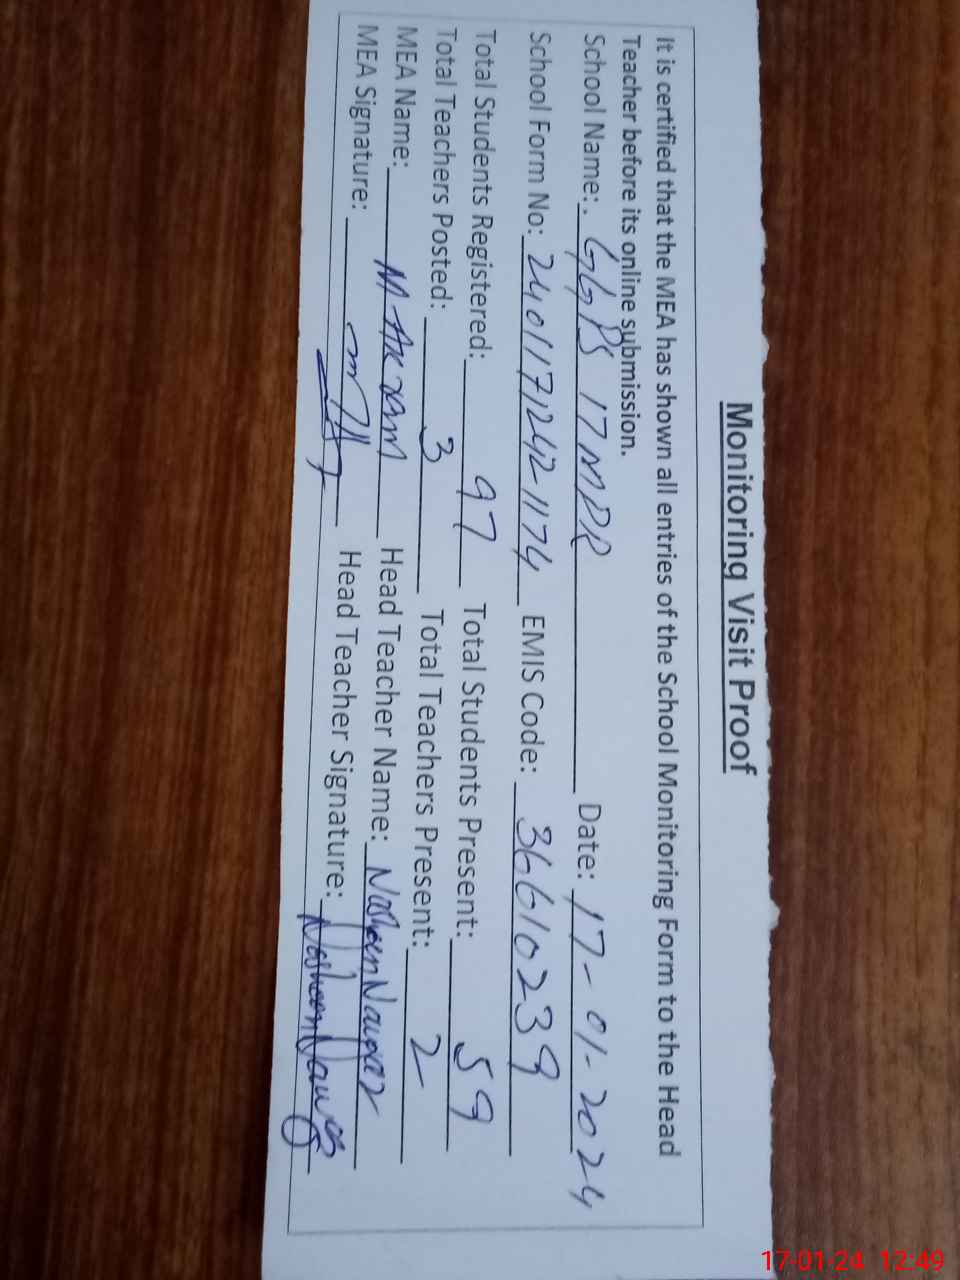 Monitoring Visit Proof
It is certified that the MEA has shown all entries of the School Monitoring Form to the Head
Teacher before its online submission.
School Name: GGPS 17 MPR Date: 17-01-2024
School Form No: 24011712421174 EMIS Code: 36610239
Total Students Registered: 97 Total Students Present: 59
Total Teachers Posted: 3 Total Teachers Present: 2
MEA Name: M Akram Head Teacher Name: Nosheen Nawaz
MEA Signature: Head Teacher Signature: Nosheen Nawaz
17-01-24 12:49